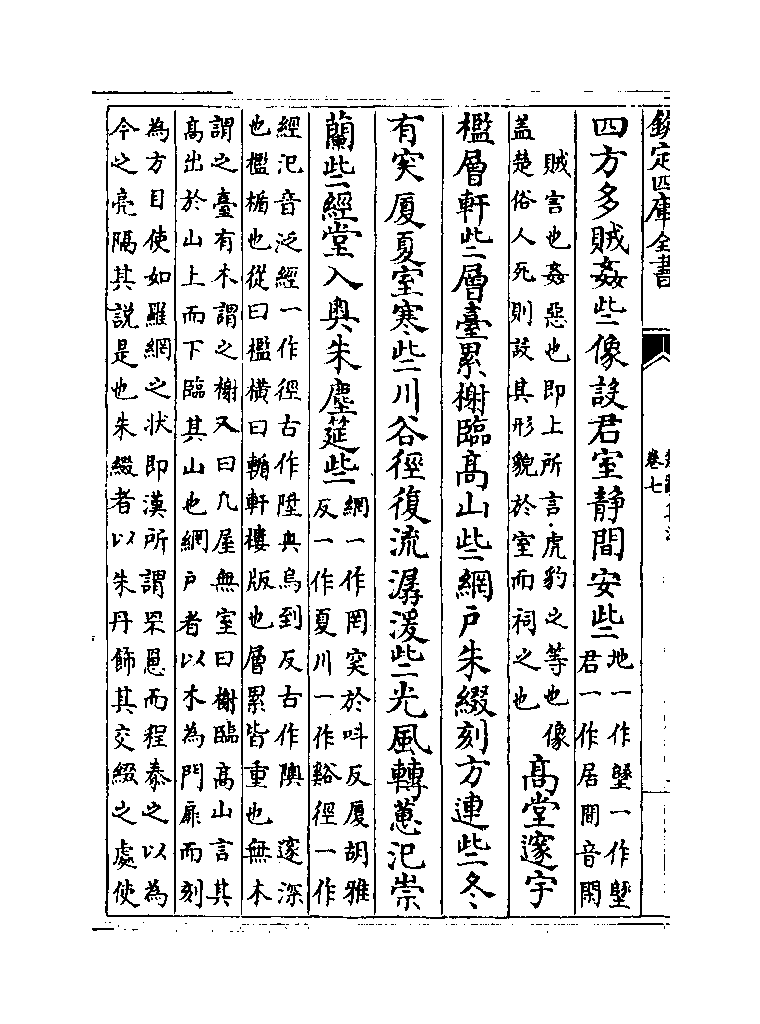 欽定四庫全書
卷七
四方多賊姦些像設君室静間安些
地一作 一作
君一作居間音閑
賊言也姦惡也即上所言虎豹之等也像
盖楚俗人死則設其形貌於室而祠之也
髙堂邃宇
檻層軒些層臺累榭臨髙山些網戶朱綴刻方連些冬
有突厦夏室寒些川谷徑復流潺湲些光風轉蕙氾崇
蘭些經堂入奥朱塵筵些
網一作罔突於呌反厦胡雅
反一作夏川一作谿徑一作
經氾音泛經一作徑古作陞奥烏到反古作隩 邃深
也檻楯也從曰檻橫曰楯軒樓版也層累皆重也無木
謂之臺有木謂之榭又曰凡屋無室曰榭臨髙山言其
髙出於山上而下臨其山也網戶者以木為門扉而刻
為方目使如羅網之状即漢所謂罘罳而程泰之以為
今之亮隔其説是也朱綴者以朱丹飾其交綴之處使